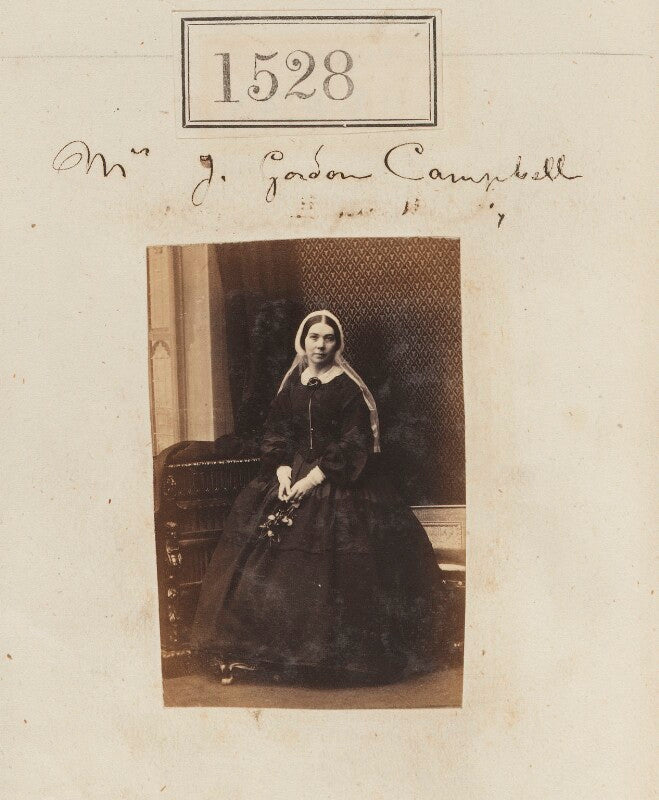 1528
Mrs J. Gordon Campbell